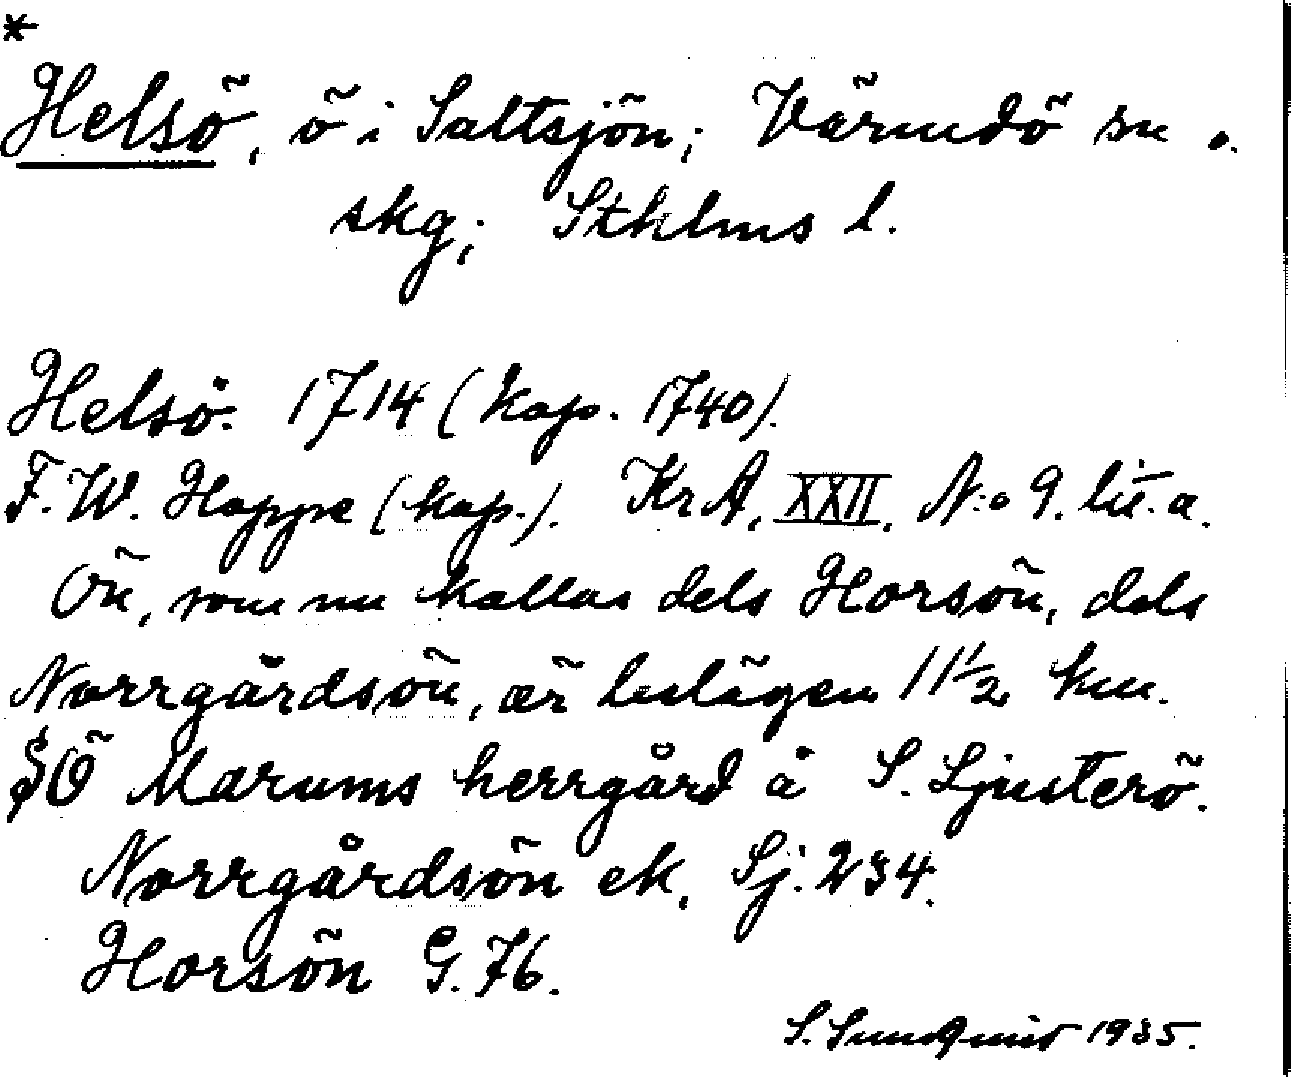 *
Helsö, ö i Saltsjön; Värmdö sn o.
skg; Sthlms l.
Helsö. 1714 (kop. 1740).
F. W. Hoppe (kop.). KrA, XXII. N:o 9. lit. a.
Ön, som nu kallas dels Horsön, dels
Norrgårdsön, är belägen 11½ km.
SÖ Marums herrgård å S. Ljusterö.
Norrgårdsön ek. Sj. 234.
Horsön G. 76.
S. Sundquist 1935.